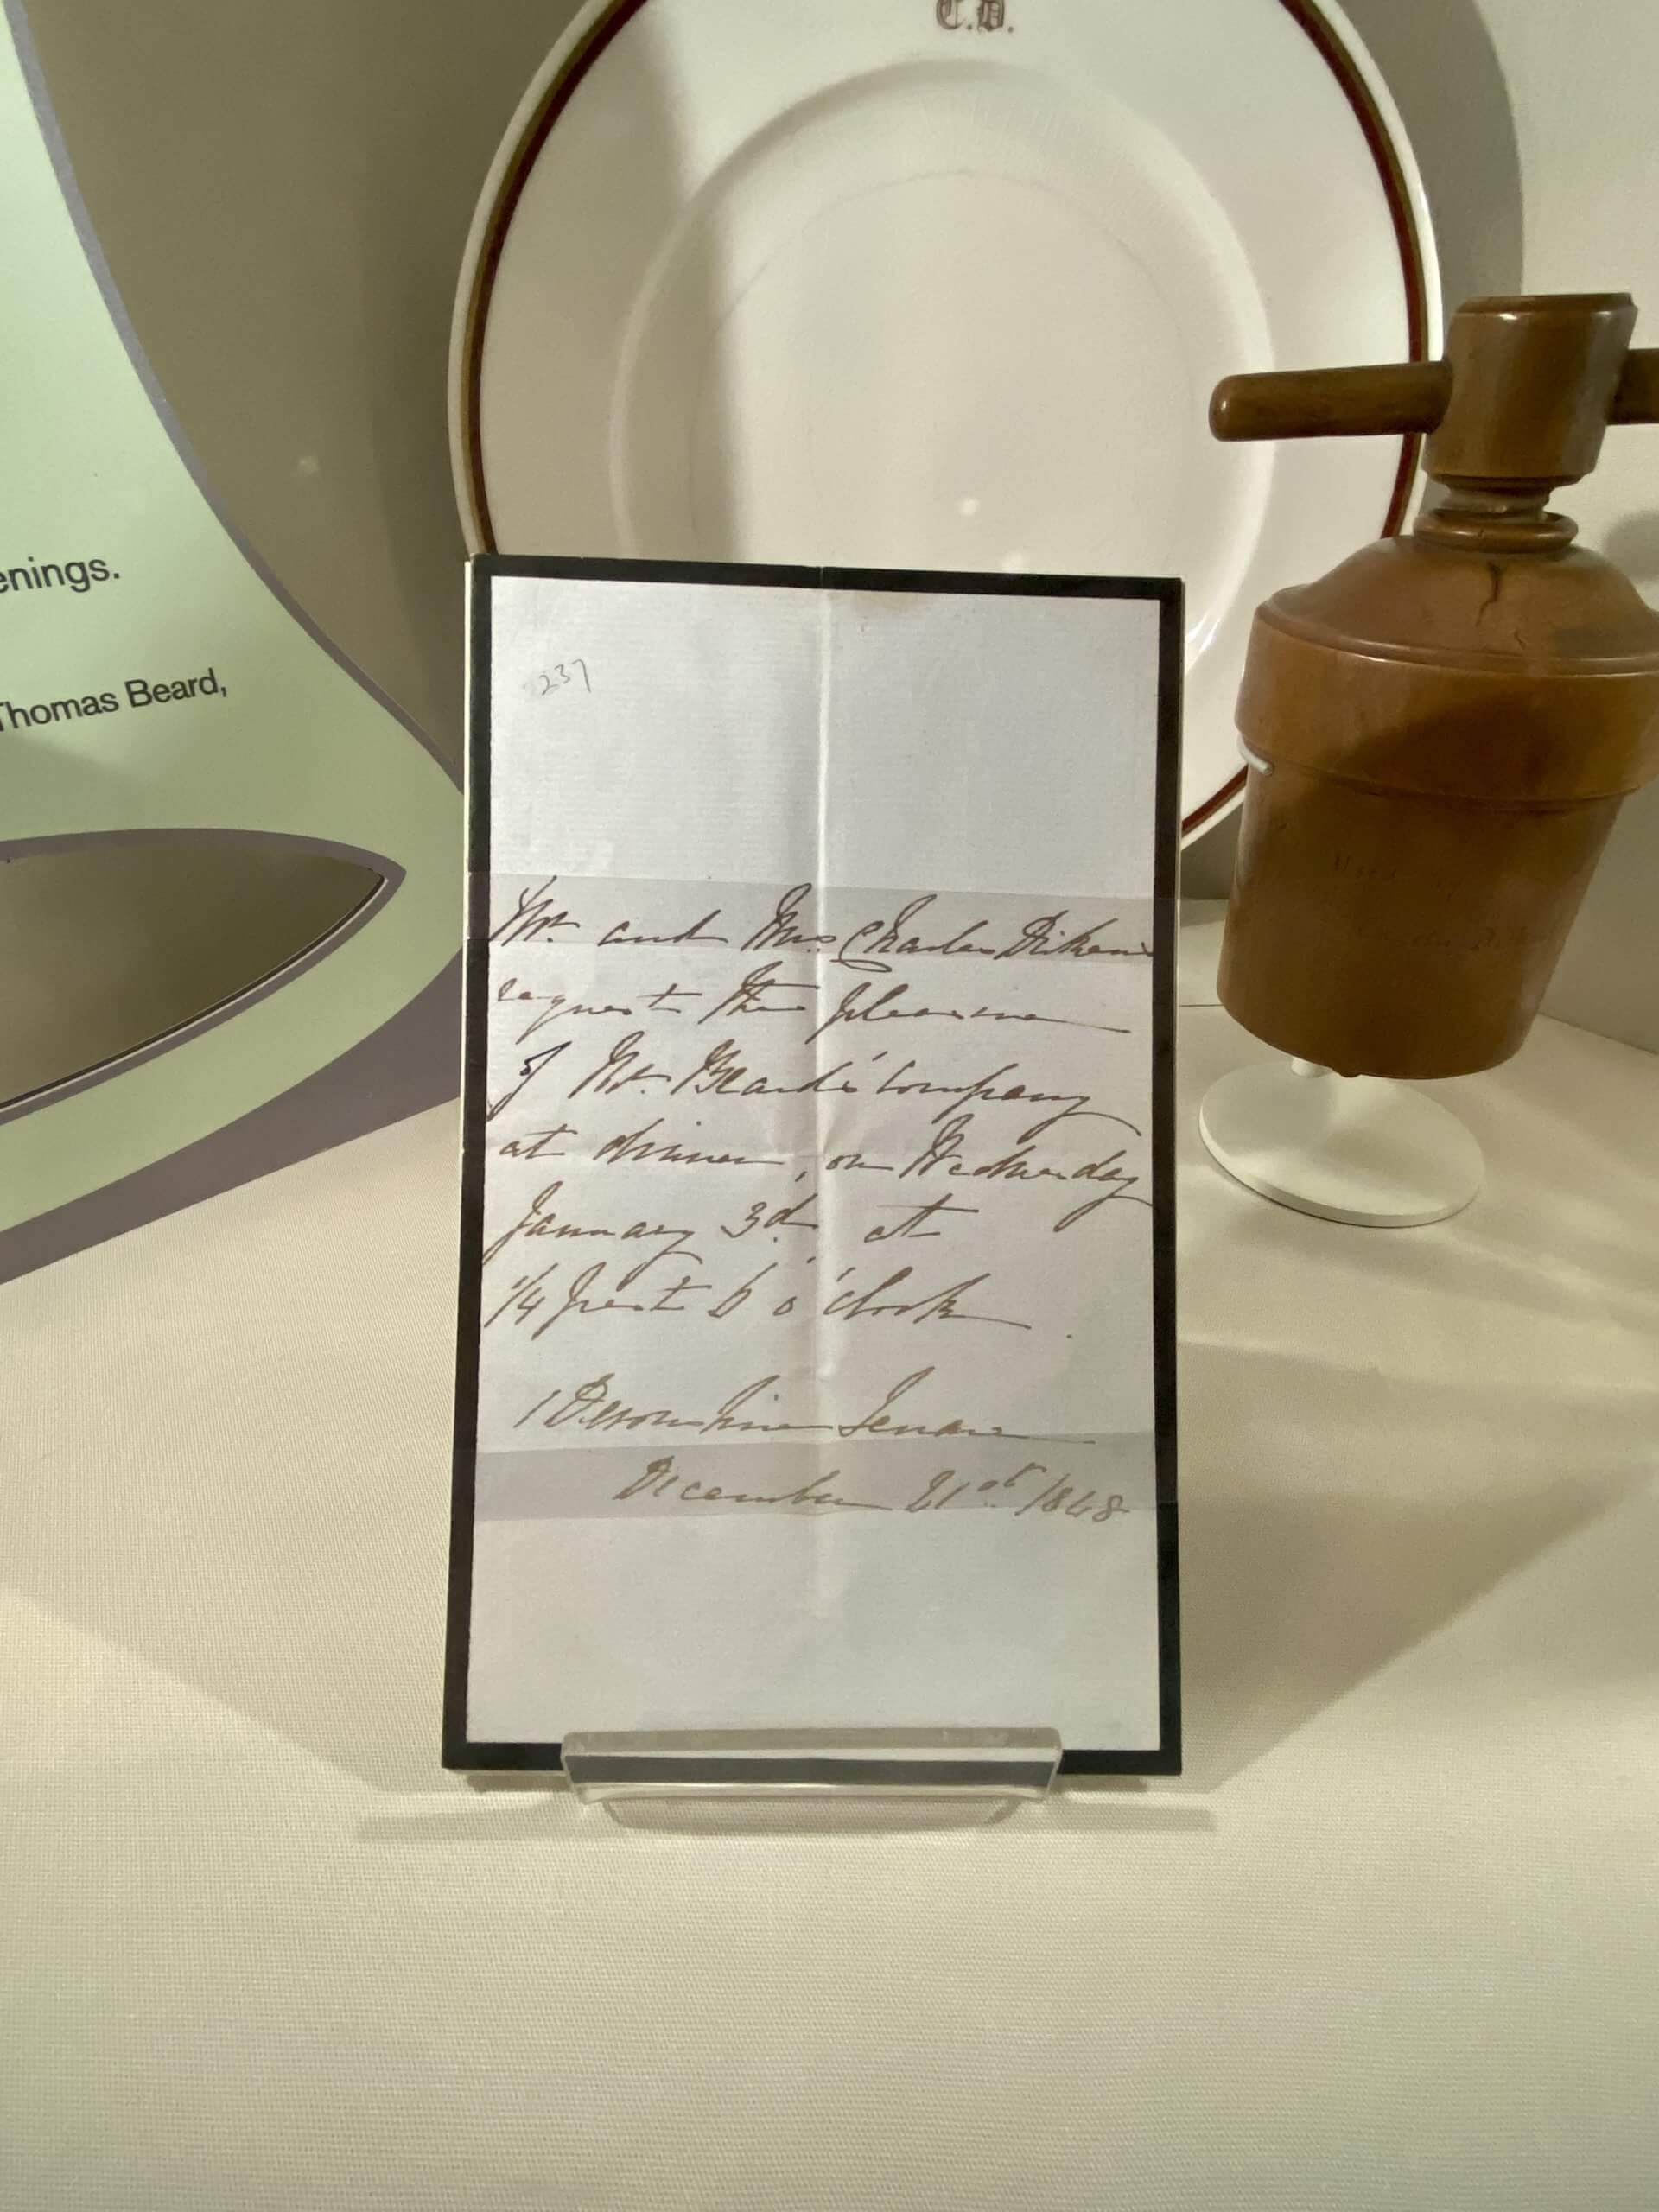 C.D.
enings.
Thomas Beard,
237
Mr. and Mrs. Charles Dickens
request the pleasure
of Mr. Beard's company
at dinner, on Wednesday
January 3d. at
1/4 past 6 o'clock.
1 Devonshire Terrace
December 21st. 1848